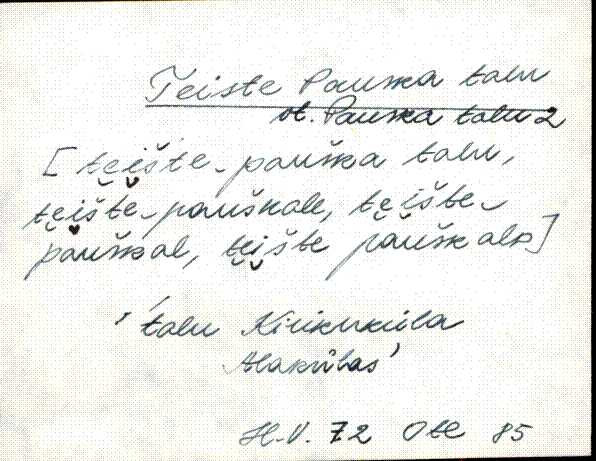 Teiste Pauska talu
vt. Pauska talu 2
[ te̮i̮šte-pauška talu,
te̮i̮šte-pauškalle, te̮i̮šte-
pauškal, te̮i̮šte pauškalᴅ]
'talu Kirikuküla
Alakülas'
H.V. 72 Ote 85